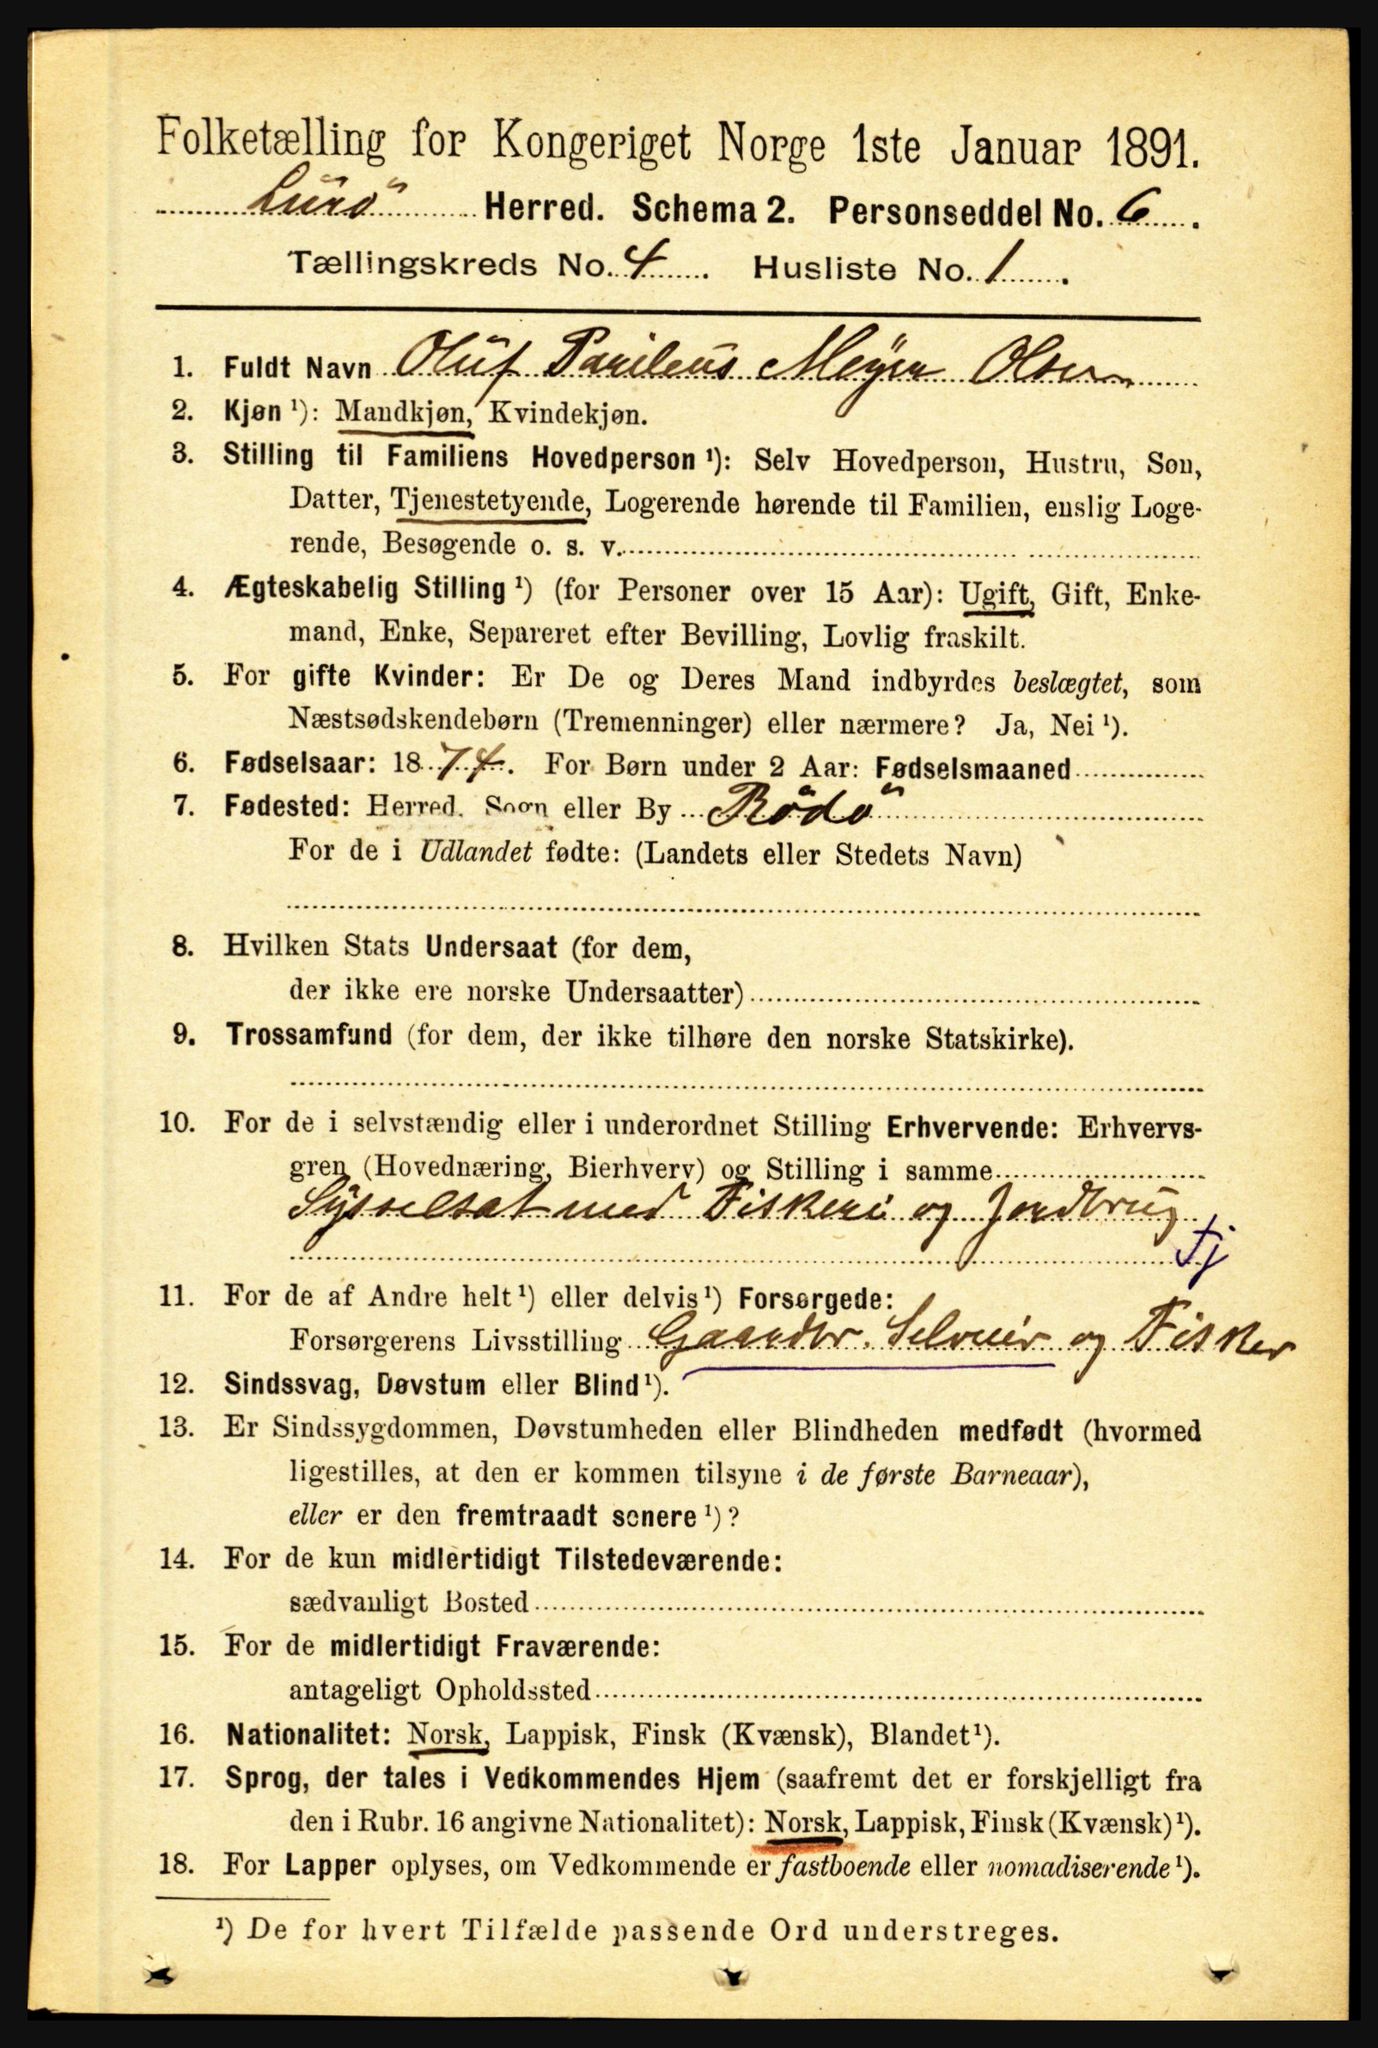 Folketælling for Kongeriget Norge 1ste Januar 1891.
Lurö Herred. Schema 2. Personseddel No. 6.
Tællingskreds No. 4. Husliste No. 1.
1. Fuldt Navn Oluf Parileus Meyer Olsen
2. Kjøn ¹): Mandkjøn, Kvindekjøn.
3. Stilling til Familiens Hovedperson ¹): Selv Hovedperson, Hustru, Søn,
Datter, Tjenestetyende, Logerende hørende til Familien, enslig Loge-
rende, Besøgende o. s. v.
4. Ægteskabelig Stilling ¹) (for Personer over 15 Aar): Ugift, Gift, Enke-
mand, Enke, Separeret efter Bevilling, Lovlig fraskilt.
5. For gifte Kvinder: Er De og Deres Mand indbyrdes beslægtet, som
Næstsødskendebørn (Tremenninger) eller nærmere? Ja, Nei ¹).
6. Fødselsaar: 1874. For Børn under 2 Aar: Fødselsmaaned
7. Fødested: Herred, Sogn eller By Rödö
For de i Udlandet fødte: (Landets eller Stedets Navn)
8. Hvilken Stats Undersaat (for dem,
der ikke ere norske Undersaatter)
9. Trossamfund (for dem, der ikke tilhøre den norske Statskirke).
10. For de i selvstændig eller i underordnet Stilling Erhvervende: Erhvervs-
gren (Hovednæring, Bierhverv) og Stilling i samme
Sysselsat med Fiskeri og Jordbrug
Tj
11. For de af Andre helt ¹) eller delvis ¹) Forsørgede:
Forsørgerens Livsstilling Gaardbr. Selveier og Fisker
12. Sindssvag, Døvstum eller Blind ¹).
13. Er Sindssygdommen, Døvstumheden eller Blindheden medfødt (hvormed
ligestilles, at den er kommen tilsyne i de første Barneaar),
eller er den fremtraadt senere ¹)?
14. For de kun midlertidigt Tilstedeværende:
sædvanligt Bosted
15. For de midlertidigt Fraværende:
antageligt Opholdssted
16. Nationalitet: Norsk, Lappisk, Finsk (Kvænsk), Blandet ¹).
17. Sprog, der tales i Vedkommendes Hjem (saafremt det er forskjelligt fra
den i Rubr. 16 angivne Nationalitet): Norsk, Lappisk, Finsk (Kvænsk) ¹).
18. For Lapper oplyses, om Vedkommende er fastboende eller nomadiserende ¹).
¹) De for hvert Tilfælde passende Ord understreges.